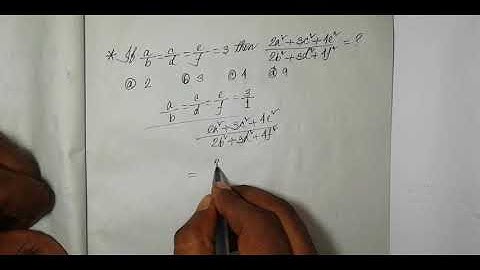 * If a/b = c/d = e/f = 3 then 2a²+3c²+4e² / 2b²+3d²+4f² = ?
ⓐ 2 ⓑ 3 ⓒ 4 ⓓ 9
a/b = c/d = e/f = 3/1
2a²+3c²+4e² / 2b²+3d²+4f²
=